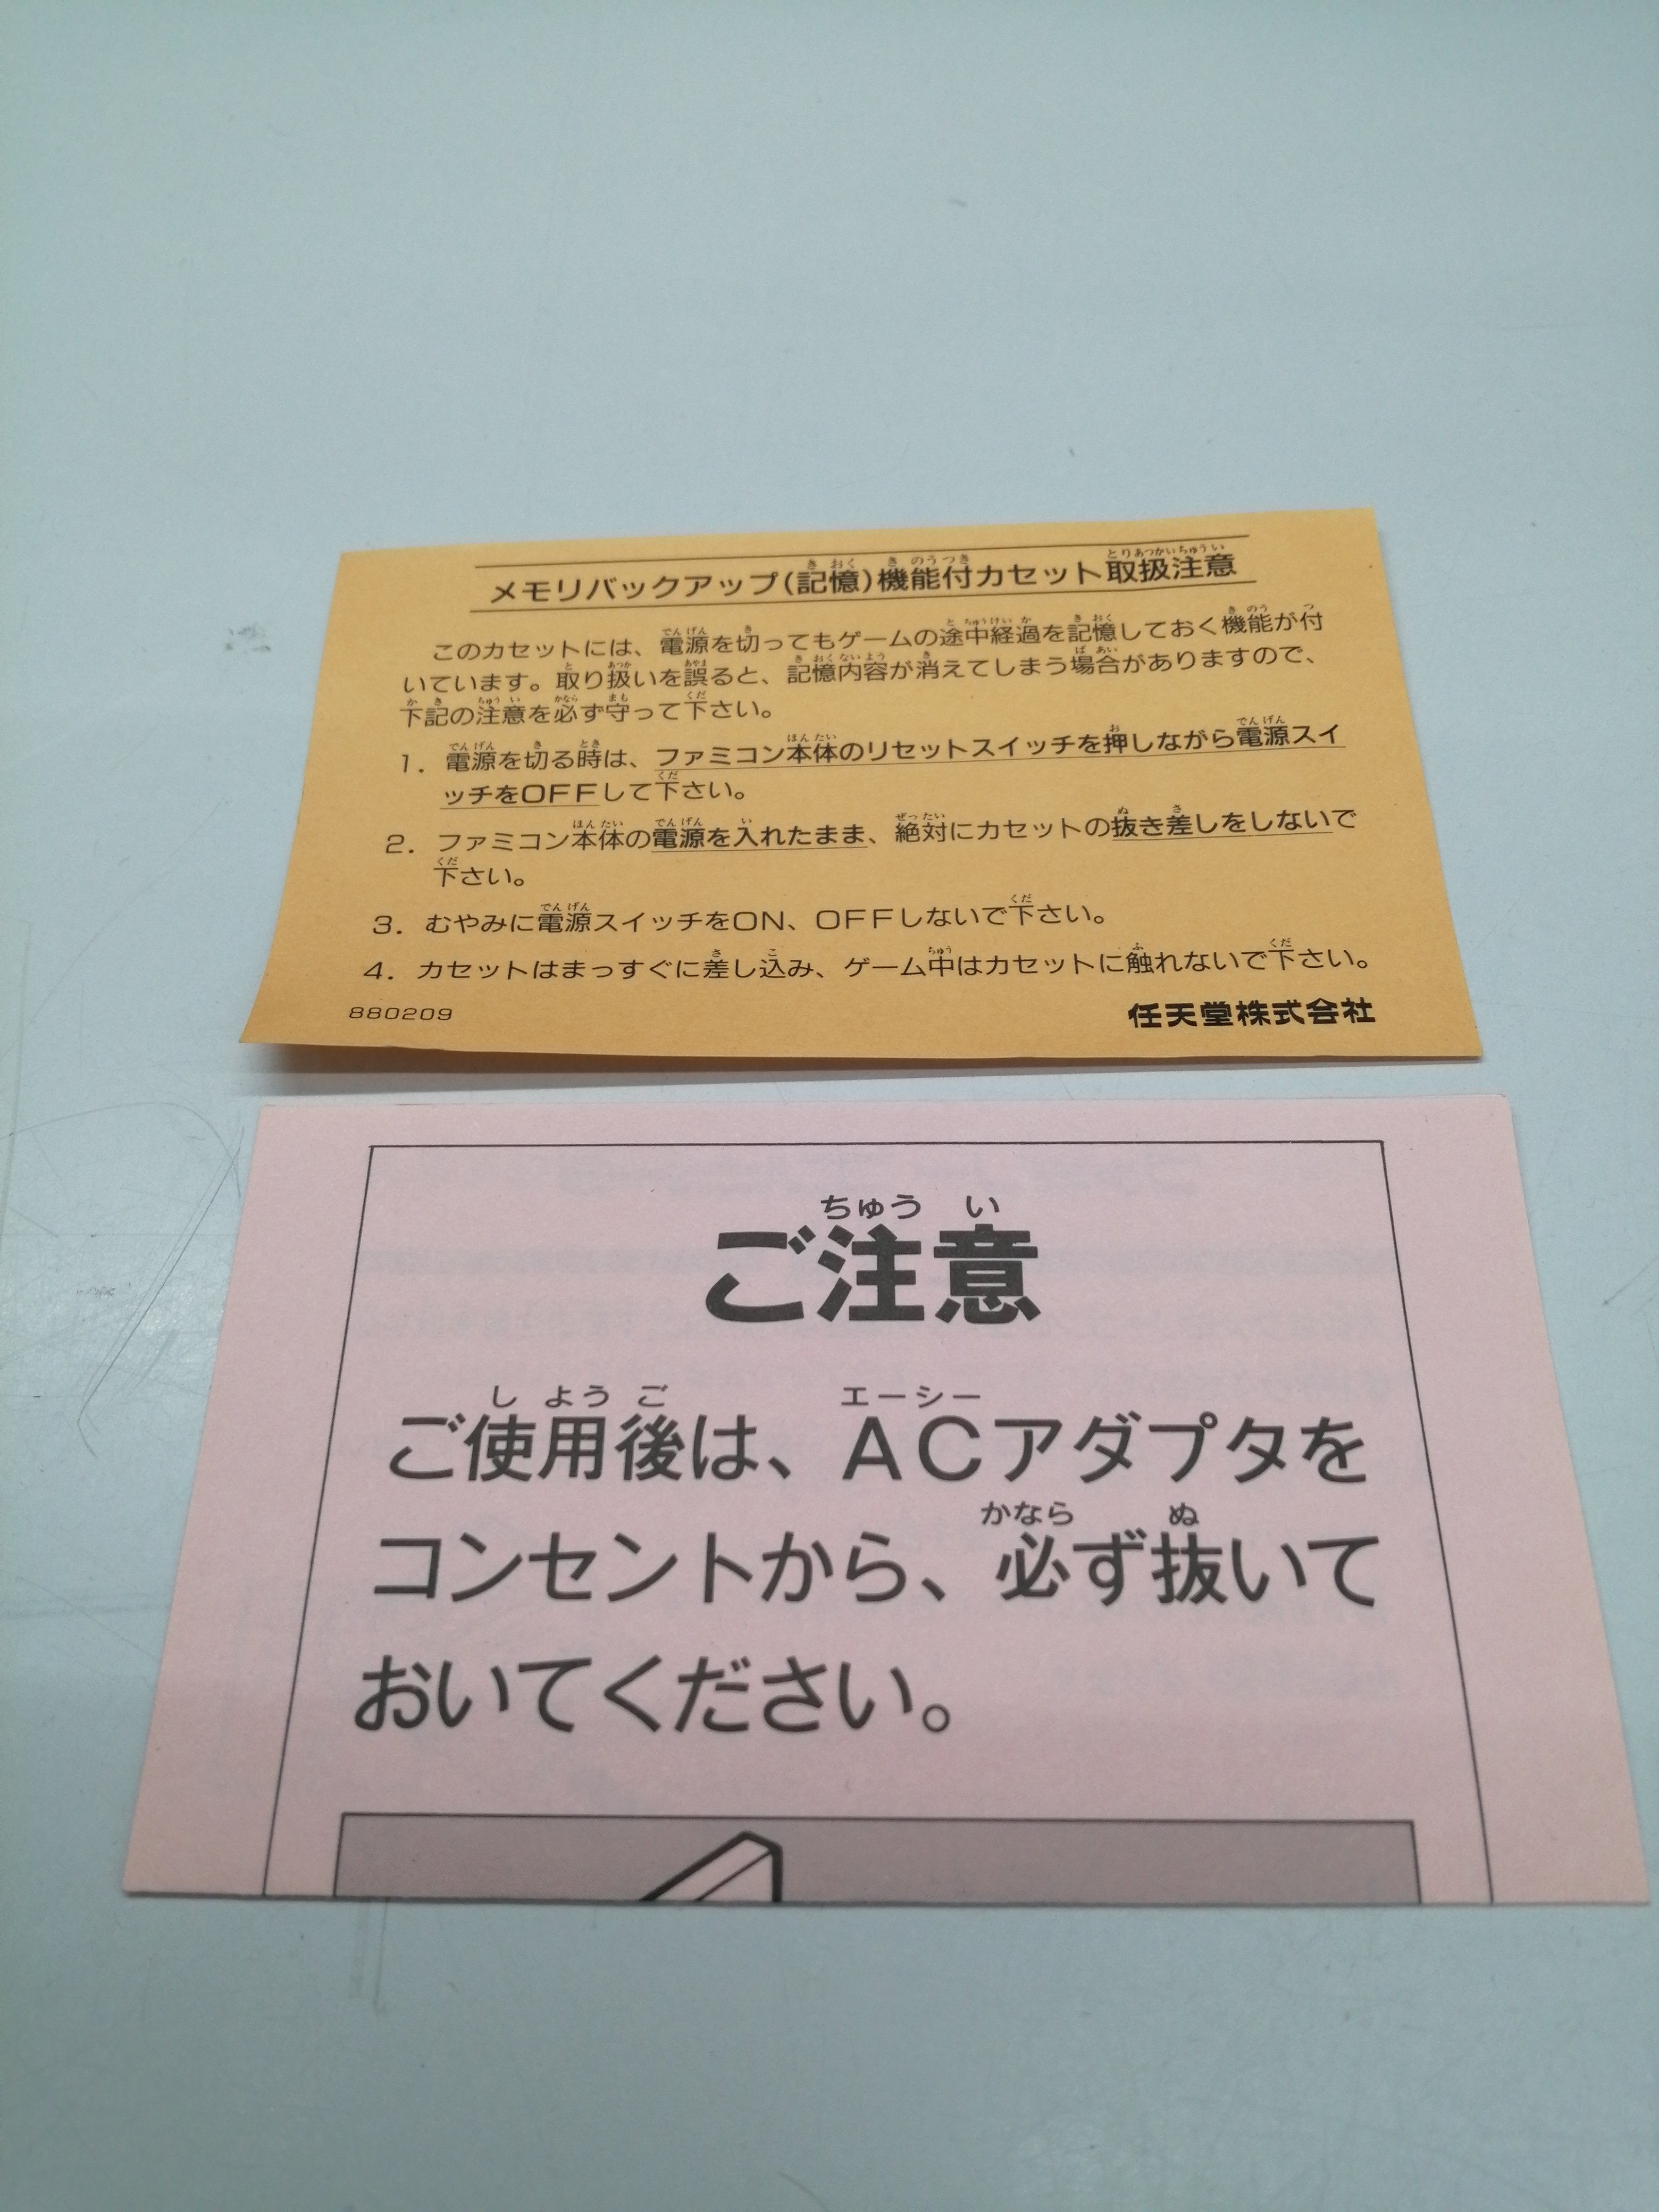 メモリバックアップ(記憶)機能付カセット取扱注意
このカセットには、電源を切ってもゲームの途中経過を記憶しておく機能が付
いています。取り扱いを誤ると、記憶内容が消えてしまう場合がありますので、
下記の注意を必ず守って下さい。
1. 電源を切る時は、ファミコン本体のリセットスイッチを押しながら電源スイ
ッチをOFFして下さい。
2. ファミコン本体の電源を入れたまま、絶対にカセットの抜き差しをしないで
下さい。
3. むやみに電源スイッチをON、OFFしないで下さい。
4. カセットはまっすぐに差し込み、ゲーム中はカセットに触れないで下さい。
880209 任天堂株式会社
ちゅう い
ご注意
し よう ご エーシー
ご使用後は、ACアダプタを
かなら ぬ
コンセントから、必ず抜いて
おいてください。